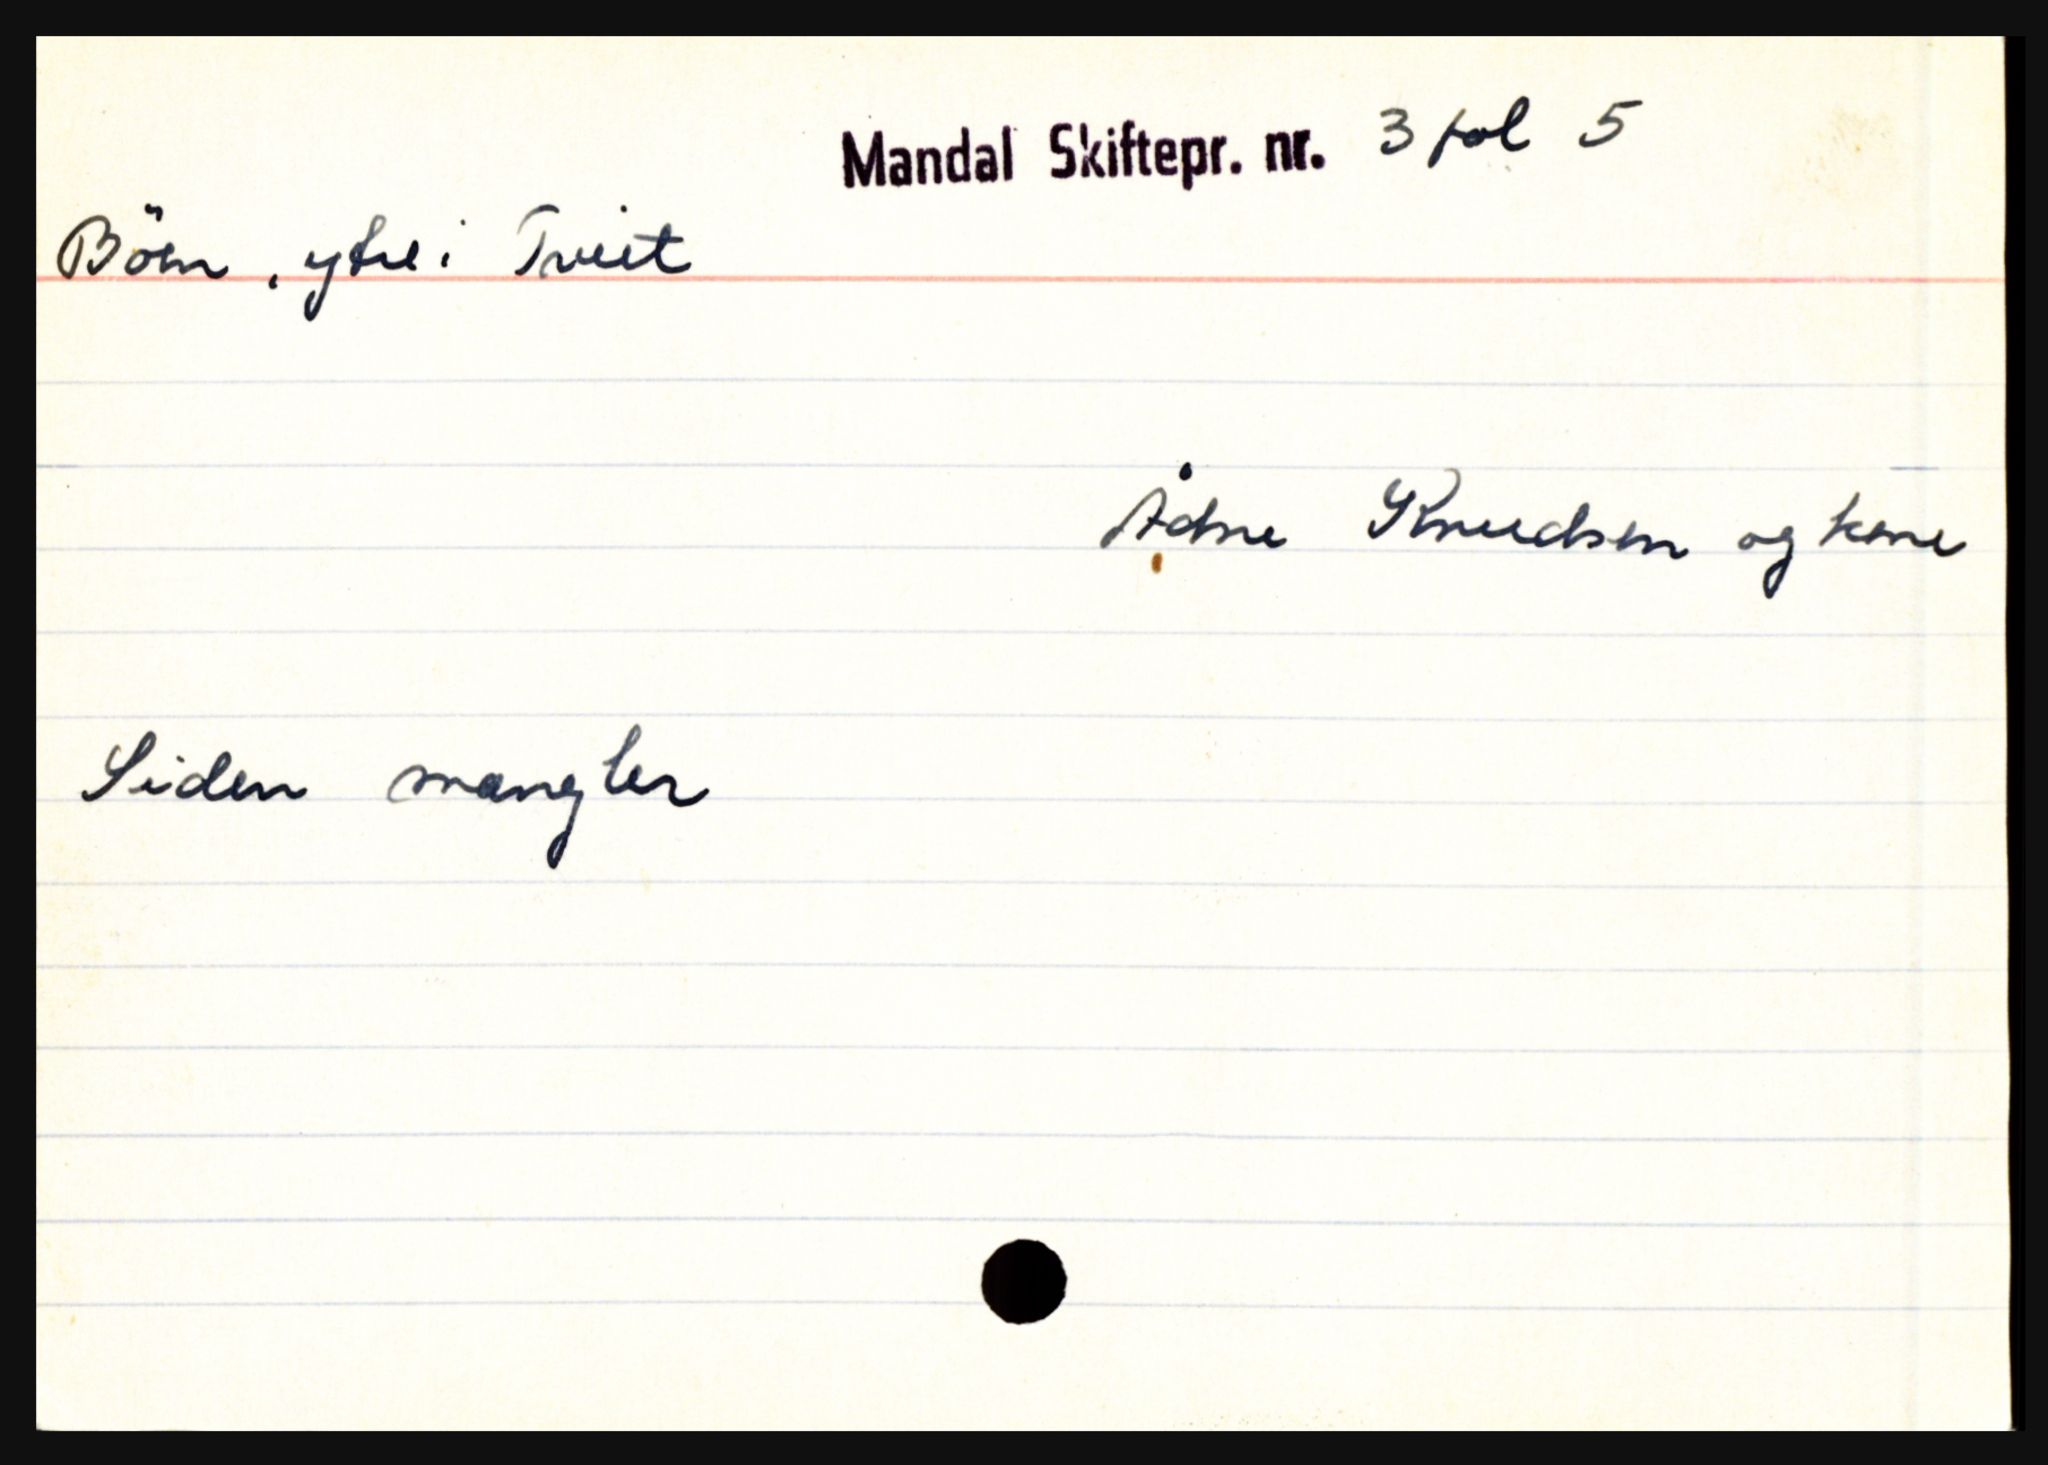 Mandal Skiftepr. nr. 3 fol 5
Böen, ytre i Tveit
Ådne Knudsen og kone
Siden mangler